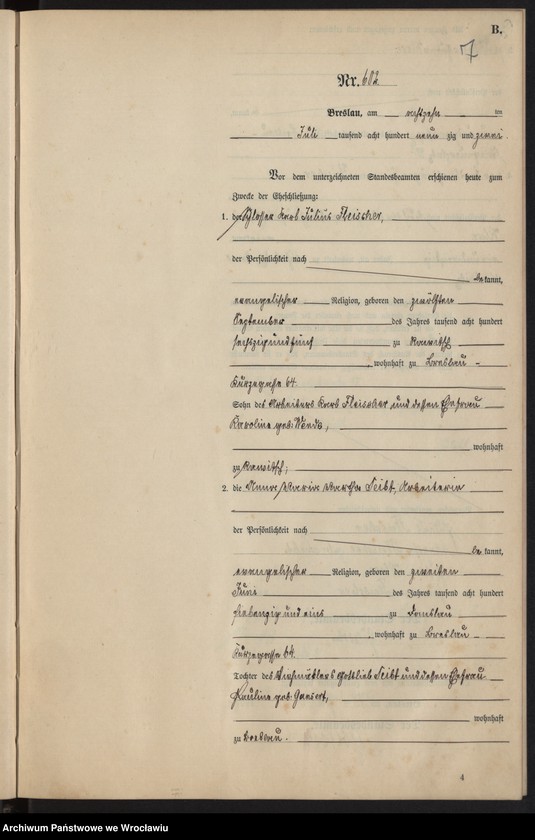 B.
7
Nr. 682
Breslau, am achtzehn ten
Juli tausend acht hundert neun zig und zwei
Vor dem unterzeichneten Standesbeamten erschienen heute zum
Zwecke der Eheschließung:
1. der Karl Julius Fleischer,
der Persönlichkeit nach
be kannt,
evangelischer Religion, geboren den zwölften
September des Jahres tausend acht hundert
sechszig und fünf zu Rawitsch
, wohnhaft zu Breslau -
Kürzegasse 64.
Sohn des Arbeiters Karl Fleischer und dessen Ehefrau
Karoline geb.
wohnhaft
zu Rawitsch,
2. die Anna Maria Martha Seibt, Arbeiterin
der Persönlichkeit nach
be kannt,
evangelischer Religion, geboren den zweiten
Juni des Jahres tausend acht hundert
siebenzig und eins zu Domslau
, wohnhaft zu Breslau -
Kürzegasse 64.
Tochter des Gottlieb Seibt und dessen Ehefrau
Pauline geb.
wohnhaft
zu Breslau.
4
Archiwum Państwowe we Wrocławiu